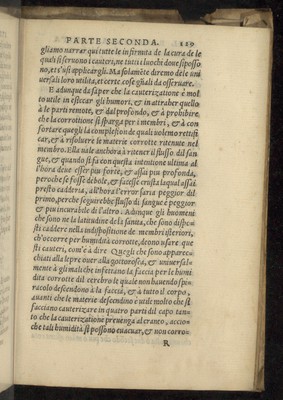 PARTE SECONDA. 129
gliamo narrar qui tutte le infirmita de la cura de le
quali si seruono i cauteri, ne tutti i luochi doue si posso
no, et s'usi applicargli. Ma solamēte diremo dele uni
uersali loro utilità, et certe cose gñali da osseruare.
E adunque da saper che la cauterizatione è mol
to utile in essiccar gli humori, & in attraher quello
à le parti remote, & dal profondo, & à prohibire,
che la corrottione si sparga per i membri, & à con
fortare quegli la complession de quali uolemo rettifi
car, & à risoluere le materie corrotte ritenute nel
membro. Ella uale anchora à ritener il flusso dil san
gue, & quando si fa con questa intentione ultima al
l'hora deue esser piu forte, & assai piu profonda,
peroche se fosse debole, & facesse crusta laqual assai
presto caderia, all'hora l'error saria peggior dil
primo, perche seguirebbe flusso di sangue peggior
& piu incurabile de l'altro. Adunque gli huomini
che sono ne la latitudine de la sanita, che sono dispo
sti caddere nella indispositione de membri isteriori,
ch'occorre per humidità corrotte, deono usare que
sti cauteri, com'è à dire. Quegli che sono apparec
chiati alla lepre ouer alla gottorosea, & uniuersal-
mente à gli mali che infettano la faccia per le humi
dita corrotte dil cerebro le quali non hauendo spi-
racolo descendono à la faccia, & à tutto il corpo,
auanti che le materie descendino è utile molto che si
facciano cauterizare in quatro parti dil capo tan-
to che la cauterizatione peruenga al craneo, accio-
che tali humidità si possono euacuar, & non corro-
R